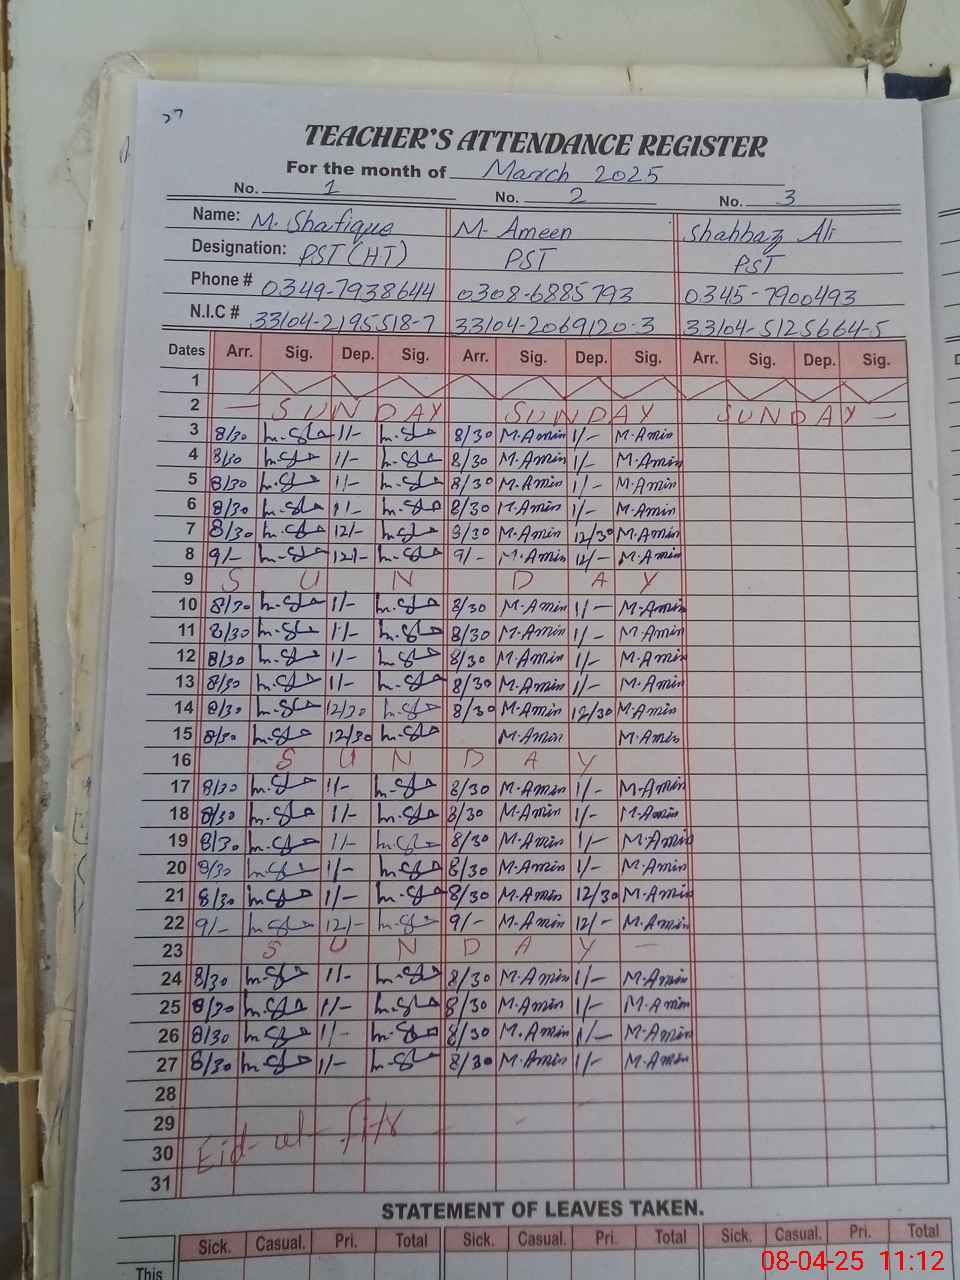 27
TEACHER'S ATTENDANCE REGISTER
For the month of March 2025
No. 1 No. 2 No. 3
Name: M. Shafique M. Ameen Shahbaz Ali
Designation: PST (HT) PST PST
Phone # 0349-7938644 0308-6885793 0345-7900493
N.I.C # 33104-2195518-7 33104-2069120-3 33104-5125664-5
Dates Arr. Sig. Dep. Sig. Arr. Sig. Dep. Sig. Arr. Sig. Dep. Sig.
1
2 — SUNDAY SUNDAY SUNDAY —
3 8/30 1/- 8/30 M.Amin 1/- M.Amin
4 8/30 1/- 8/30 M.Amin 1/- M.Amin
5 8/30 1/- 8/30 M.Amin 1/- M.Amin
6 8/30 1/- 8/30 M.Amin 1/- M.Amin
7 8/30 12/- 8/30 M.Amin 12/30 M.Amin
8 9/- 12/- 9/- M.Amin 12/- M.Amin
9 SUNDAY
10 8/30 1/- 8/30 M.Amin 1/- M.Amin
11 8/30 1/- 8/30 M.Amin 1/- M.Amin
12 8/30 1/- 8/30 M.Amin 1/- M.Amin
13 8/30 1/- 8/30 M.Amin 1/- M.Amin
14 8/30 12/30 8/30 M.Amin 12/30 M.Amin
15 8/30 12/30 M.Amin M.Amin
16 SUNDAY
17 8/30 1/- 8/30 M.Amin 1/- M.Amin
18 8/30 1/- 8/30 M.Amin 1/- M.Amin
19 8/30 1/- 8/30 M.Amin 1/- M.Amin
20 8/30 1/- 8/30 M.Amin 1/- M.Amin
21 8/30 1/- 8/30 M.Amin 12/30 M.Amin
22 9/- 12/- 9/- M.Amin 12/- M.Amin
23 SUNDAY —
24 8/30 1/- 8/30 M.Amin 1/- M.Amin
25 8/30 1/- 8/30 M.Amin 1/- M.Amin
26 8/30 1/- 8/30 M.Amin 1/- M.Amin
27 8/30 1/- 8/30 M.Amin 1/- M.Amin
28
29
30 Eid-ul-fitr
31
STATEMENT OF LEAVES TAKEN.
Sick. Casual. Pri. Total Sick. Casual. Pri. Total Sick. Casual. Pri. Total
This
08-04-25 11:12